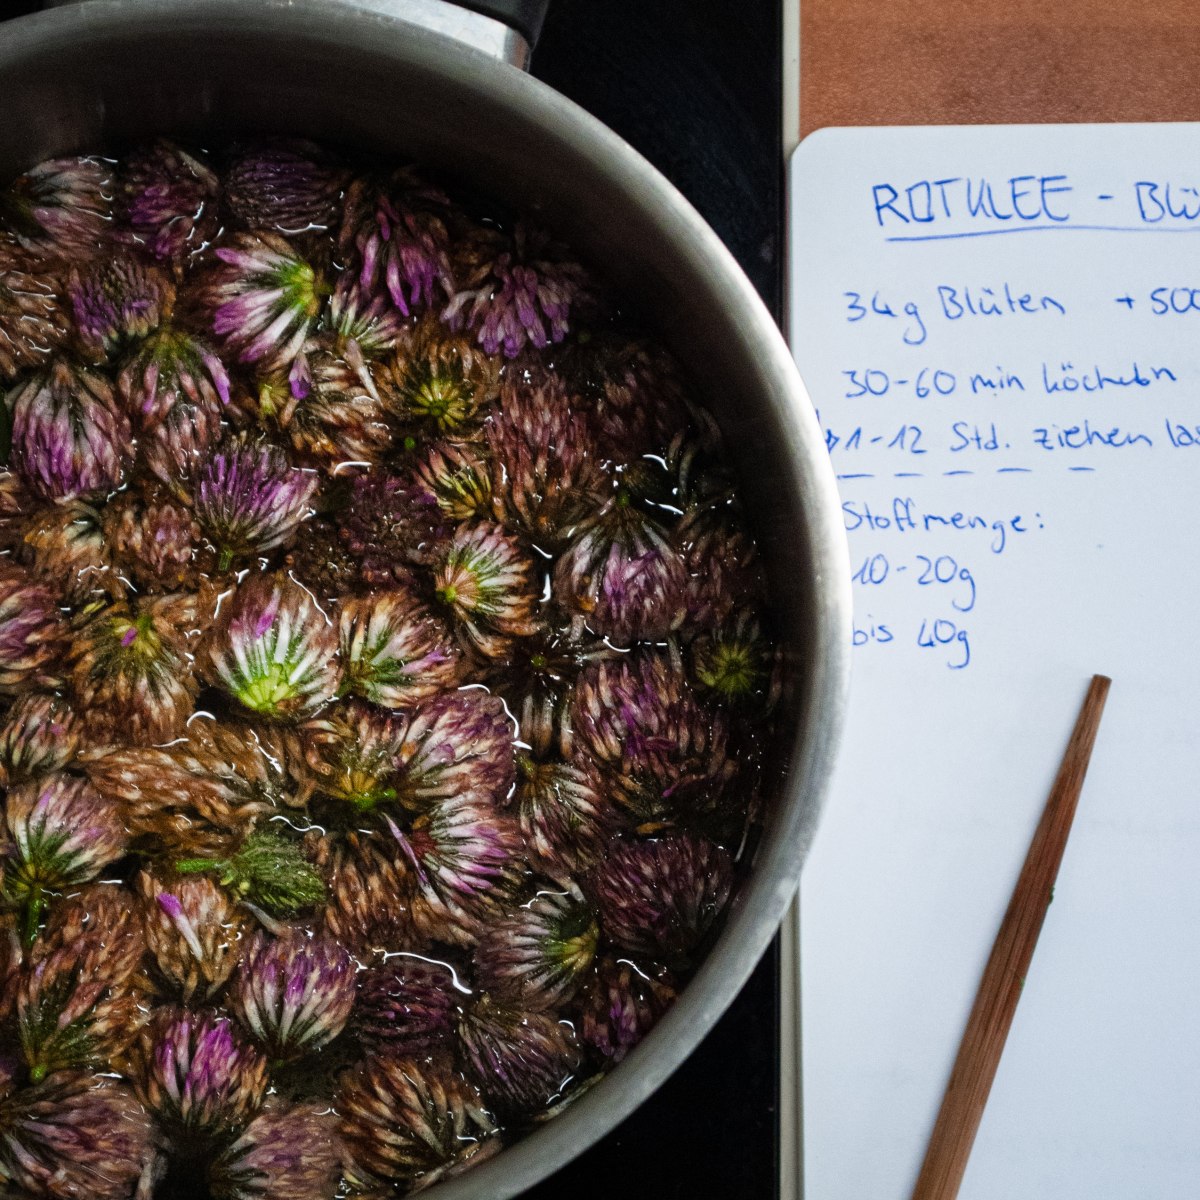 ROTKLEE - Blü
34g Blüten + 500
30-60 min köcheln
→ 1-12 Std. ziehen las
Stoffmenge:
10-20g
bis 40g